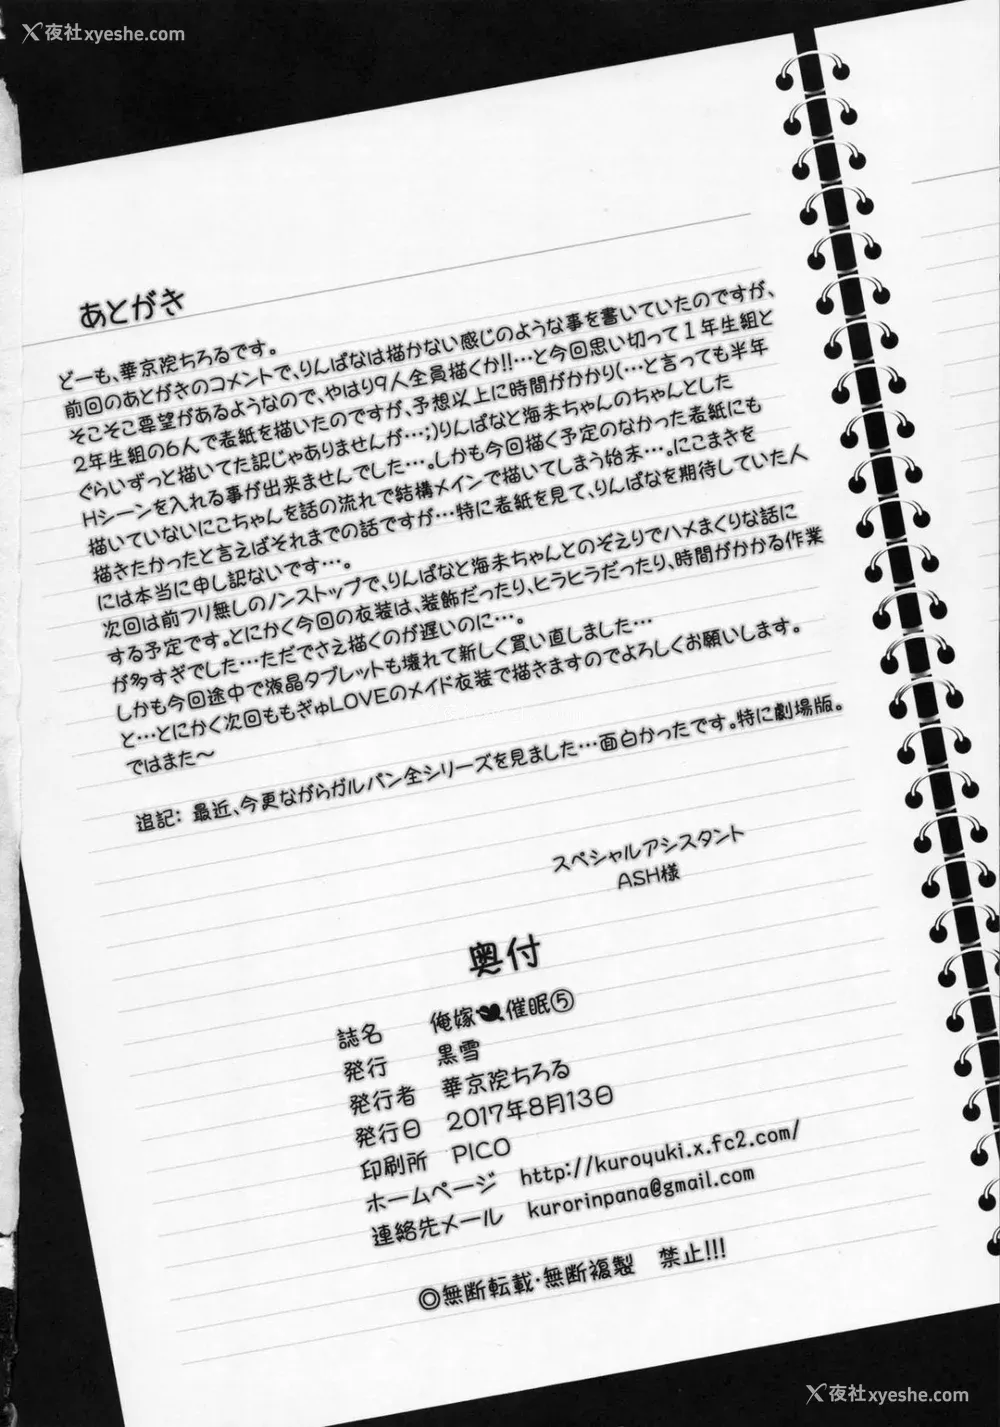 夜社xyeshe.com
あとがき
どーも、華京院ちろるです。
前回のあとがきのコメントで、りんぱなは描かない感じのような事を書いていたのですが、
そこそこ要望があるようなので、やはり9人全員描くか!!…と今回思い切って1年生組と
2年生組の6人で表紙を描いたのですが、予想以上に時間がかかり(…と言っても半年
ぐらいずっと描いてた訳じゃありませんが…;)りんぱなと海未ちゃんのちゃんとした
Hシーンを入れる事が出来ませんでした…。しかも今回描く予定のなかった表紙にも
描いていないにこちゃんを話の流れで結構メインで描いてしまう始末…。にこまきを
描きたかったと言えばそれまでの話ですが…特に表紙を見て、りんぱなを期待していた人
には本当に申し訳ないです…。
次回は前フリ無しのノンストップで、りんぱなと海未ちゃんとのぞえりでハメまくりな話に
する予定です。とにかく今回の衣装は、装飾だったり、ヒラヒラだったり、時間がかかる作業
が多すぎでした…ただでさえ描くのが遅いのに…。
しかも今回途中で液晶タブレットも壊れて新しく買い直しました…
と…とにかく次回ももぎゅLOVEのメイド衣装で描きますのでよろしくお願いします。
ではまた～
追記: 最近、今更ながらガルパン全シリーズを見ました…面白かったです。特に劇場版。
スペシャルアシスタント
ASH様
奥付
誌名 俺嫁催眠⑤
発行 黒雪
発行者 華京院ちろる
発行日 2017年8月13日
印刷所 PICO
ホームページ http://kuroyuki.x.fc2.com/
連絡先メール kurorinpana@gmail.com
◎無断転載・無断複製 禁止!!!
夜社xyeshe.com